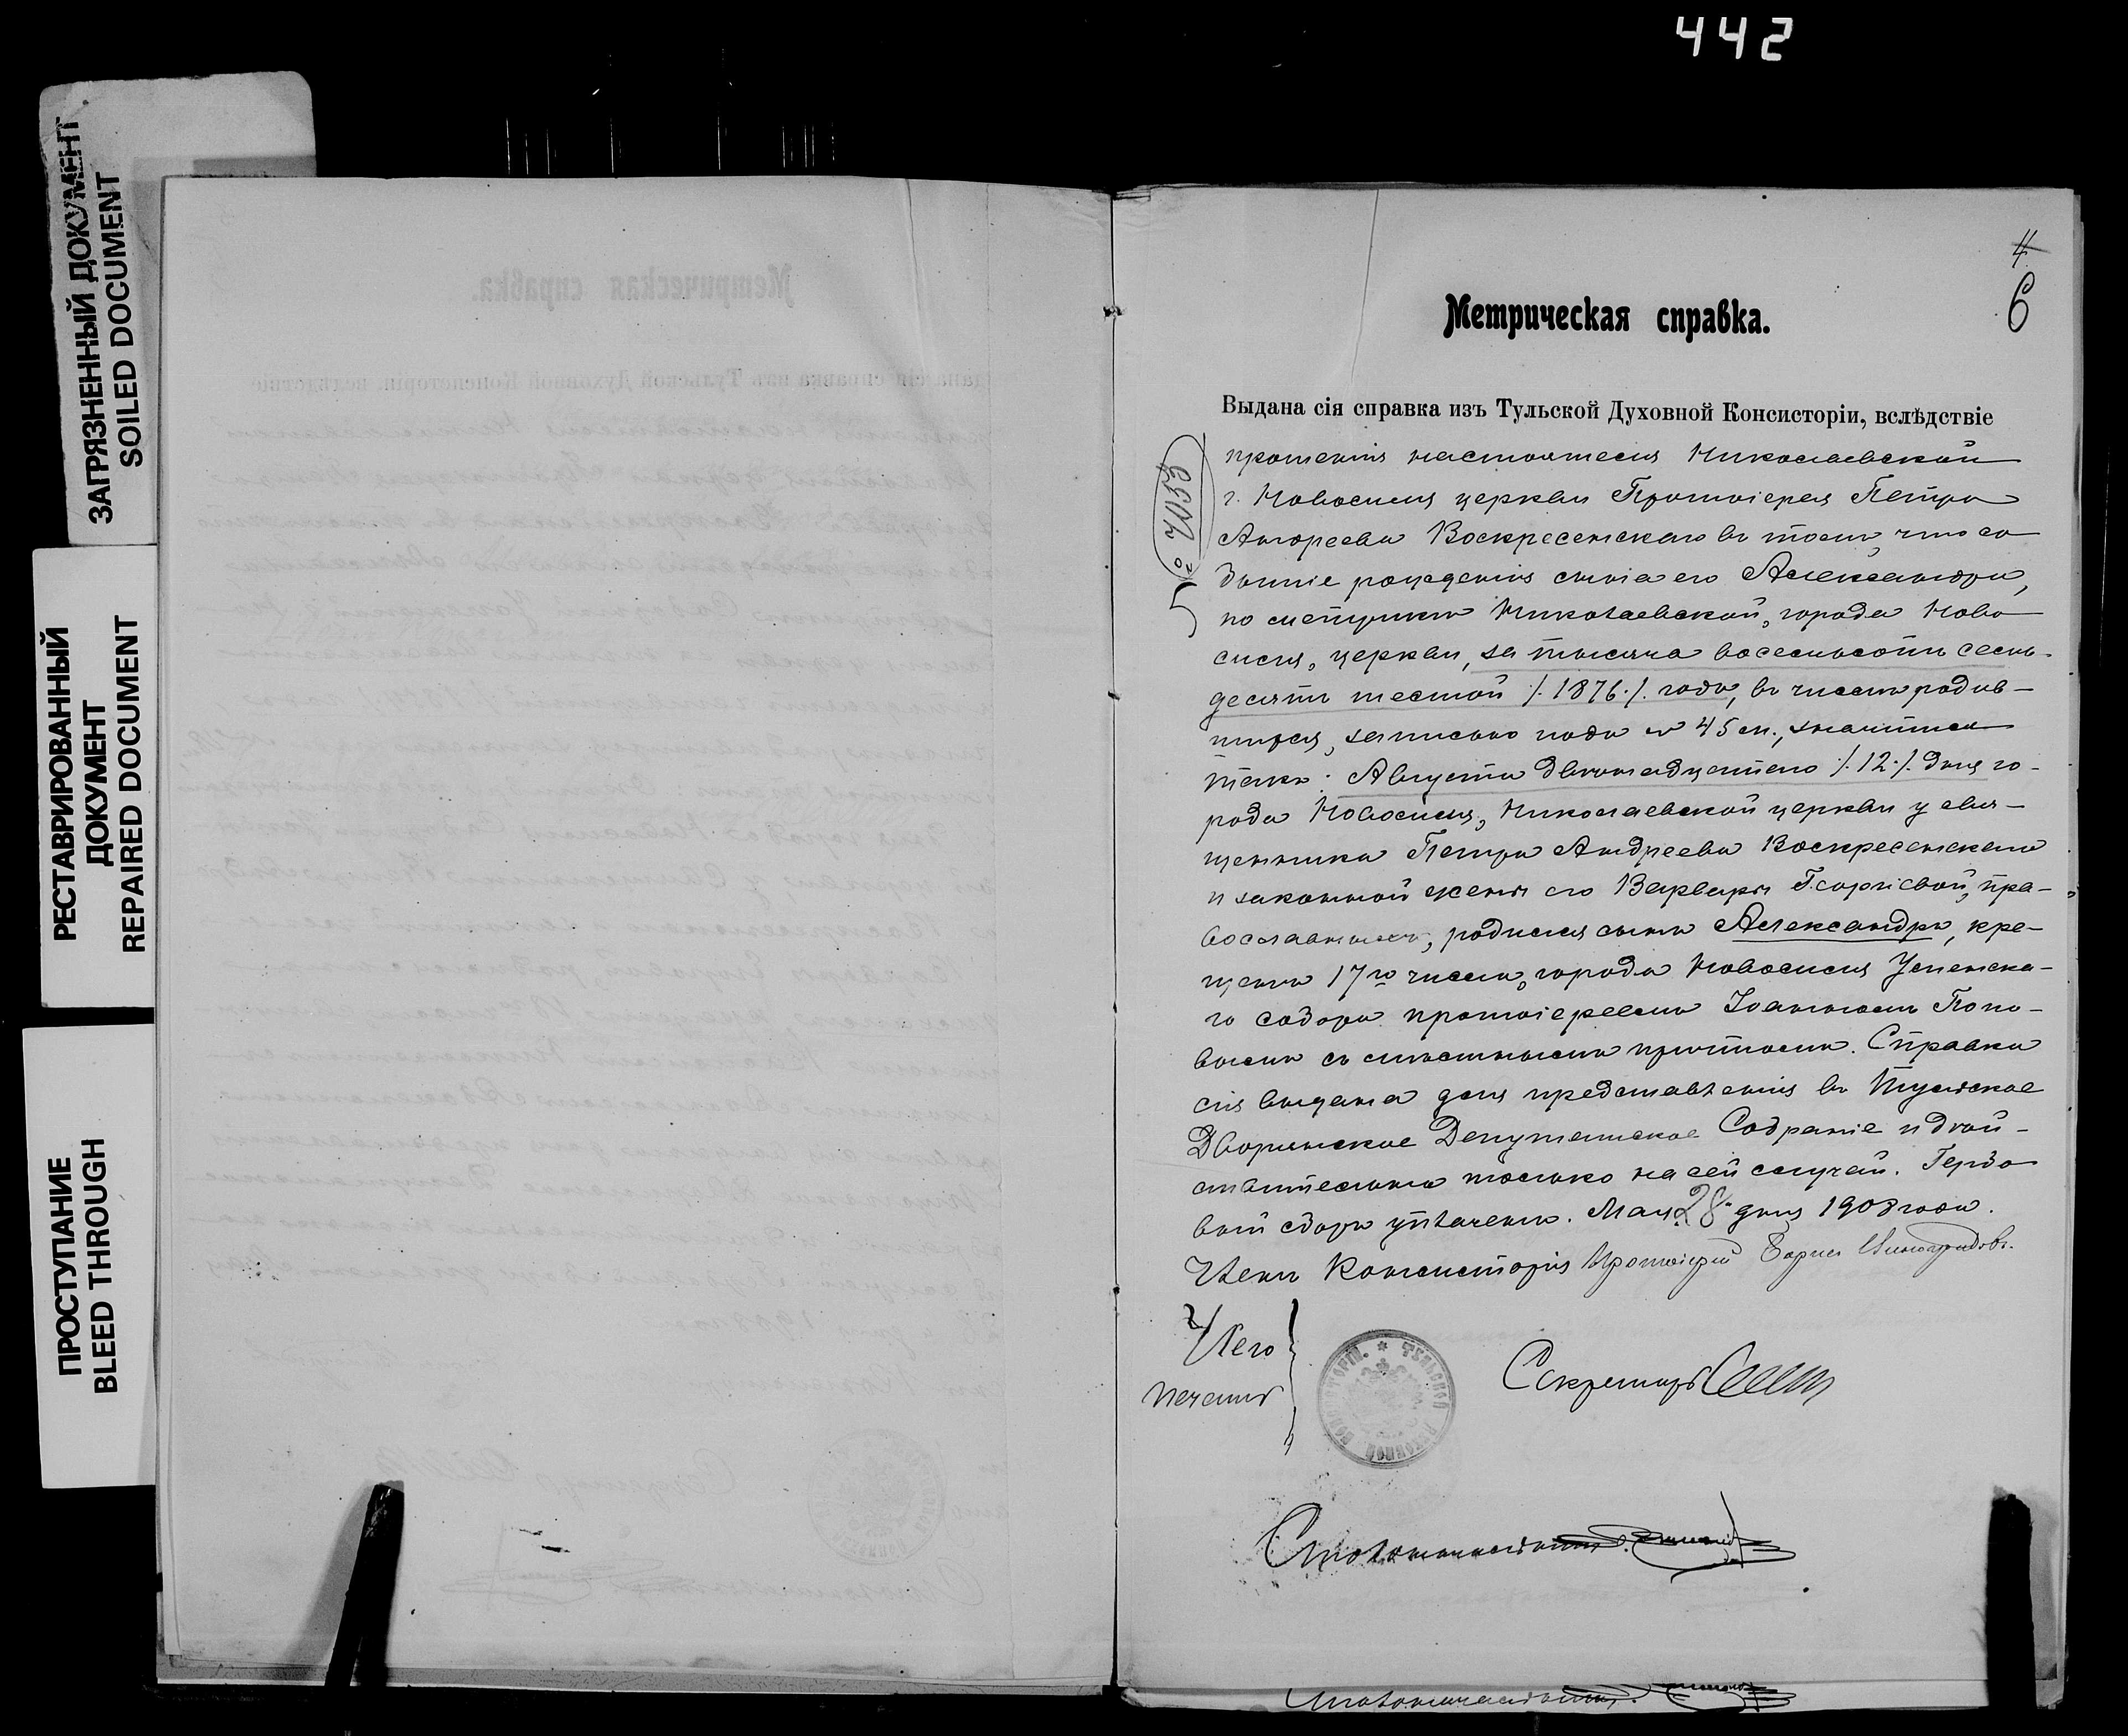 442
ЗАГРЯЗНЕННЫЙ ДОКУМЕНТ
SOILED DOCUMENT
РЕСТАВРИРОВАННЫЙ
ДОКУМЕНТ
REPAIRED DOCUMENT
ПРОСТУПАНИЕ
BLEED THROUGH
4
6
Метрическая справка.
Выдана сія справка изъ Тульской Духовной Консисторіи, вслѣдствіе
№ 7053
прошенія настоятеля Николаевской
г. Новосиля церкви Протоіерея Петра
Андреева Воскресенскаго въ томъ, что со
бытіе рожденія сына его Александра,
по метрикѣ Николаевской, города Ново
силя, церкви, за тысяча восемьсотъ семь-
десятъ шестой /.1876./. годъ, въ числѣ родив-
шихся, записано подъ № 45 м., значится
такъ: Августа двѣнадцатаго /.12./. дня го-
рода Новосиля, Николаевской церкви у свя-
щенника Петра Андреева Воскресенскаго
и законной жены его Варвары Георгіевой, пра-
вославныхъ, родился сынъ Александръ, кре-
щенъ 17го числа, города Новосиля Успенска-
го собора протоіереемъ Іоанномъ Попо-
вымъ съ мѣстнымъ причтомъ. Справка
сія выдана для представленія въ Тульское
Дворянское Депутатское Собраніе и дѣй-
ствительна только на сей случай. Гербо
вый сборъ уплаченъ. Мая 28 дня 1908 года.
Членъ Консисторіи Протоіерей Борис
Мѣсто
печати
ТУЛЬСКОЙ ДУХОВНОЙ КОНСИСТОРІИ.
Секретарь
Столоначальникъ
Столоначальникъ